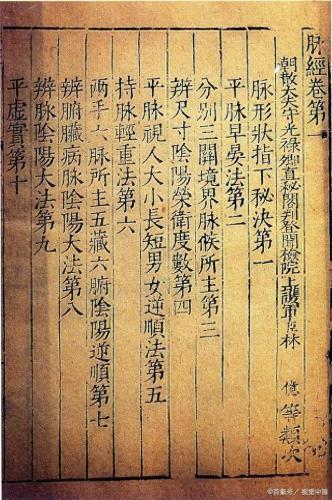 脉經卷第一
朝散大夫守光祿卿直秘閣判登聞檢院上護軍臣林億等類次
脉形狀指下秘決第一
平脉早晏法第二
分別三關境界脉候所主第三
辨尺寸陰陽榮衛度數第四
平脉視人大小長短男女逆順法第五
持脉輕重法第六
兩手六脉所主五藏六腑陰陽逆順第七
辨腑臟病脉陰陽大法第八
辨脉陰陽大法第九
平虛實第十
©百家号／视觉中国